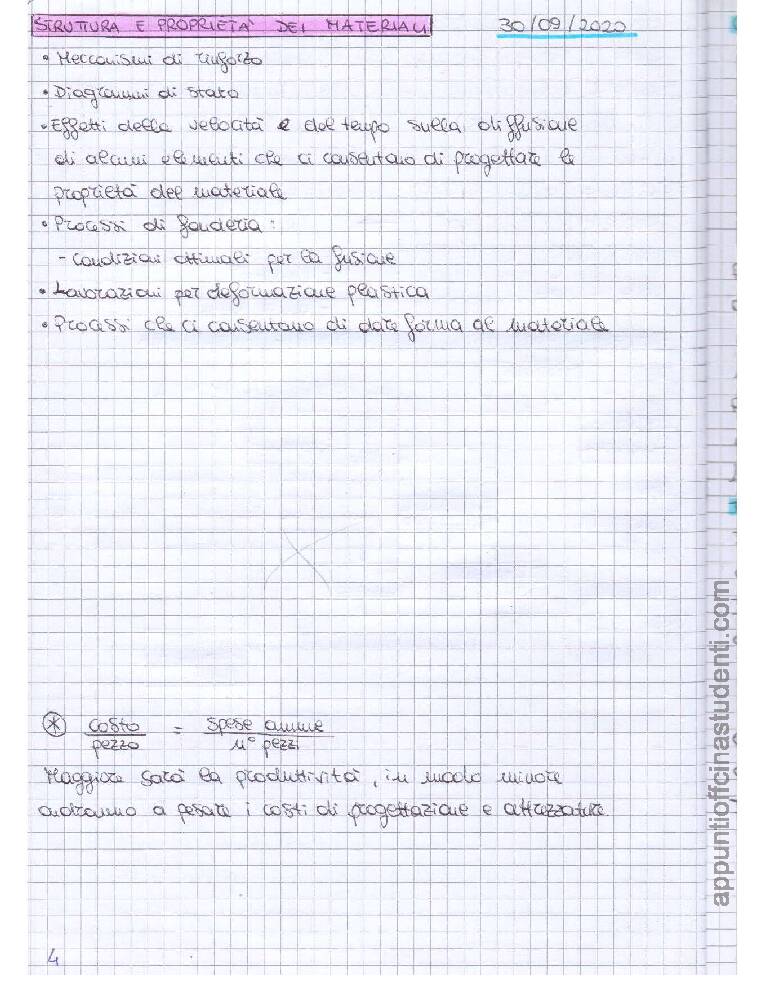 STRUTTURA E PROPRIETA' DEI MATERIALI 30/09/2020
• Meccanismi di rinforzo
• Diagrammi di stato
• Effetti della velocità e del tempo sulla diffusione
di alcuni elementi che ci consentano di progettare le
proprietà del materiale
• Processi di fonderia:
- Condizioni ottimali per la fusione
• Lavorazioni per deformazione plastica
• Processi che ci consentano di dare forma al materiale
* costo/pezzo = spese annue/n° pezzi
Maggiore sarà la produttività, in modo minore
andranno a pesare i costi di progettazione e attrezzature.
4
appuntiofficinastudenti.com